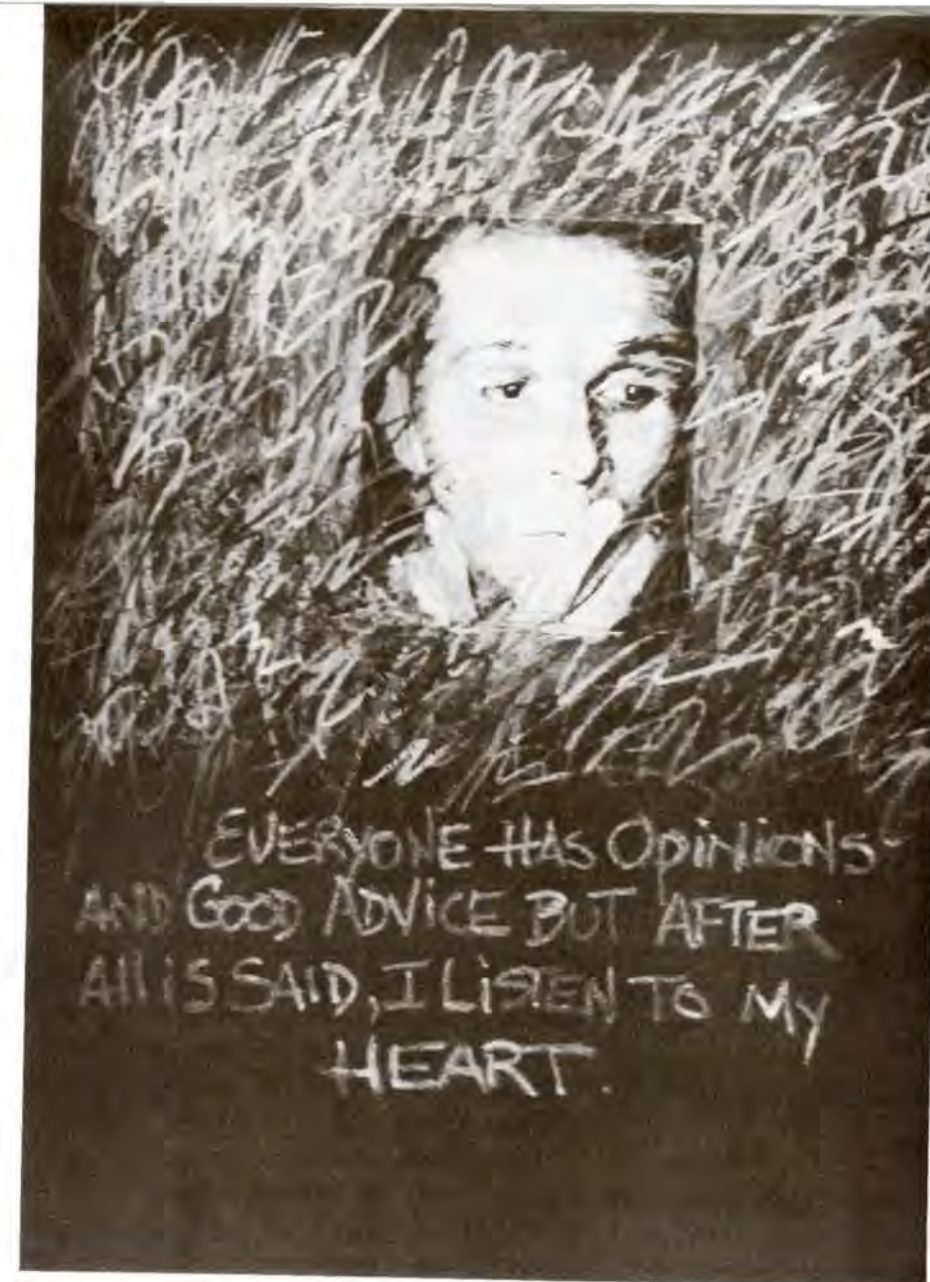 EVERYONE HAS OpiNiONS
AND GOOD ADViCE BUT AFTER
All iS SAID, I LiSTEN TO My
HEART.